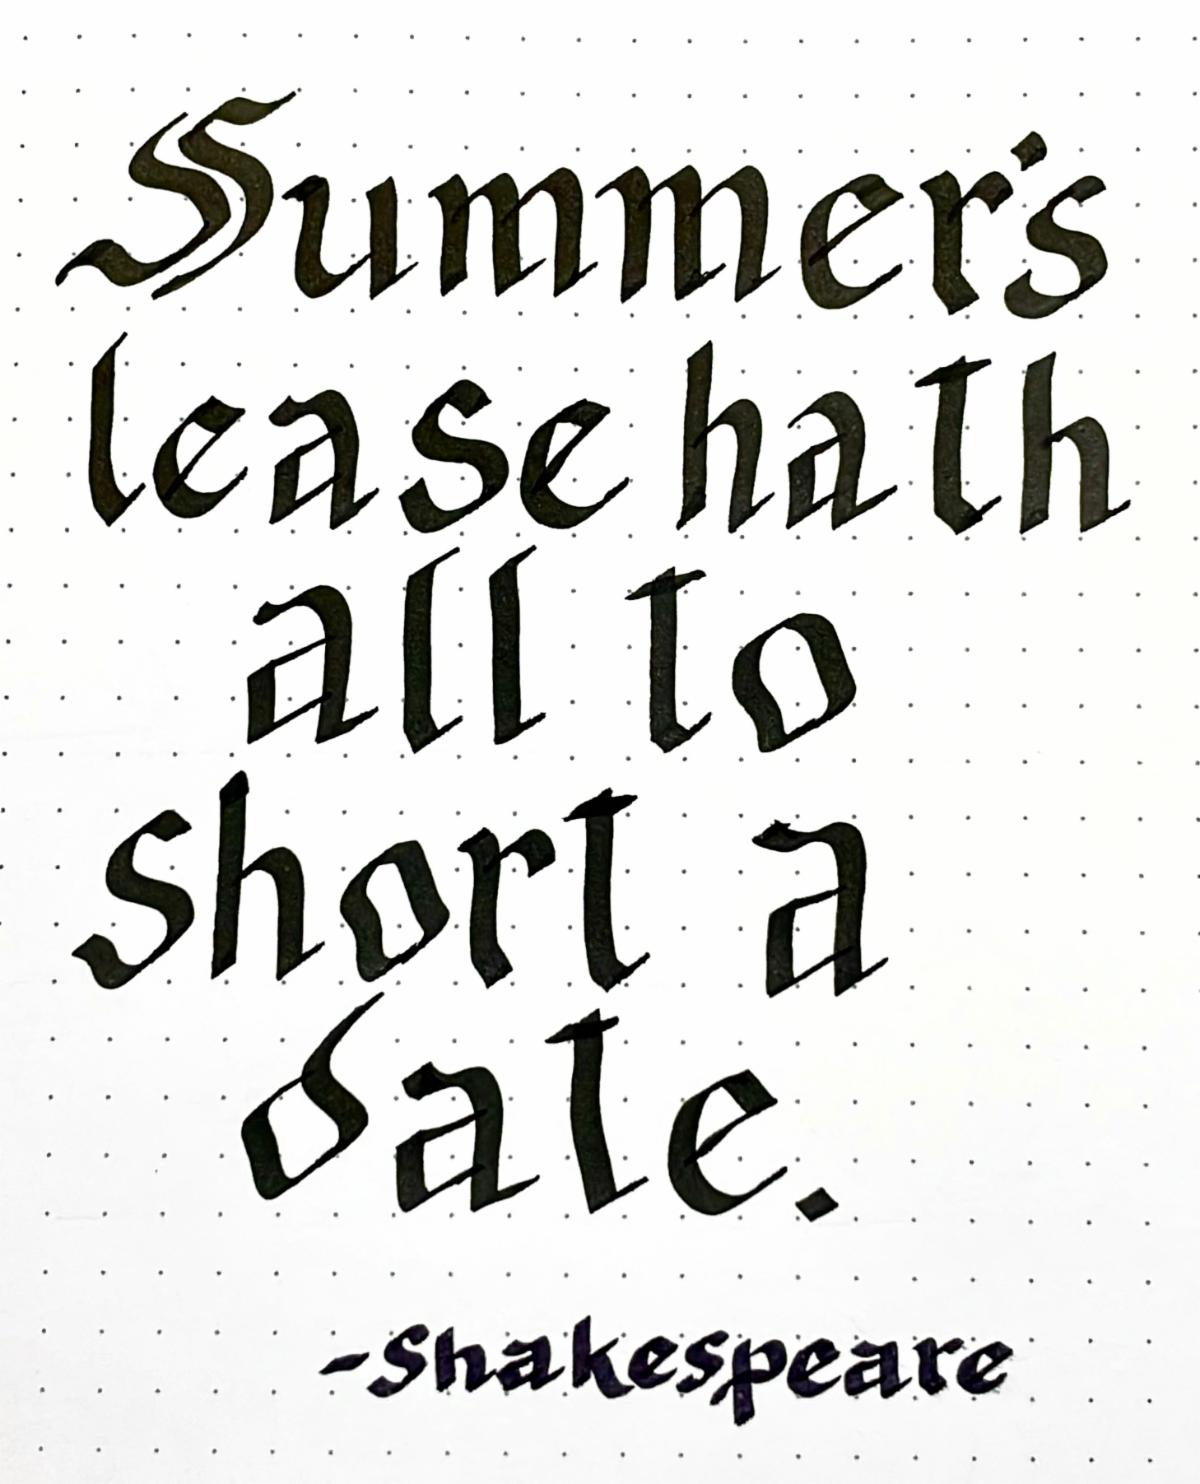 Summer's
lease hath
all to
short a
date.
-Shakespeare